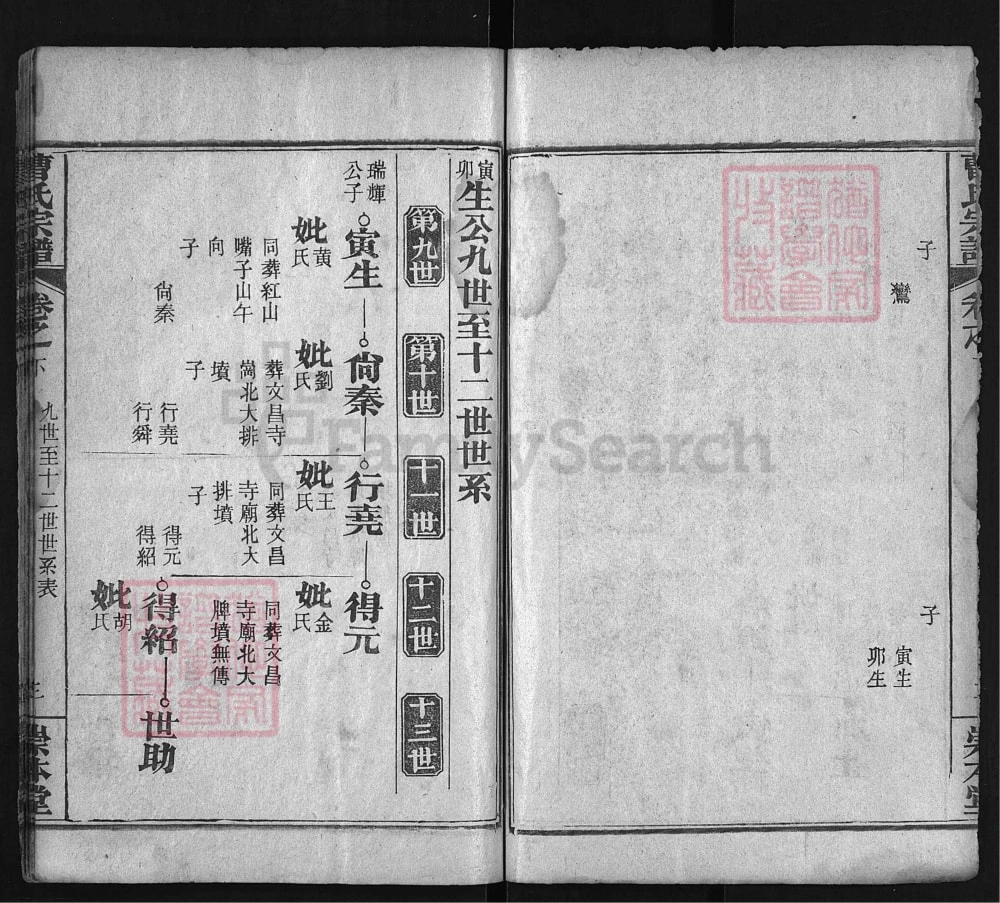 子
鸞
子
寅生
卯生
寅卯生公九世至十二世世系
第九世
第十世
十一世
十二世
十三世
瑞輝公子
寅生
尙秦
行堯
得元
妣黄氏
同葬紅山嘴子山午向
子
尙秦
妣劉氏
葬文昌寺崗北大排墳
子
行堯
行舜
妣王氏
同葬文昌寺廟北大排墳
子
得元
得紹
妣金氏
同葬文昌寺廟北大牌墳無傳
得紹
世助
妣胡氏
曹氏宗譜
卷之一下
九世至十二世世系表
崇本堂
FamilySearch